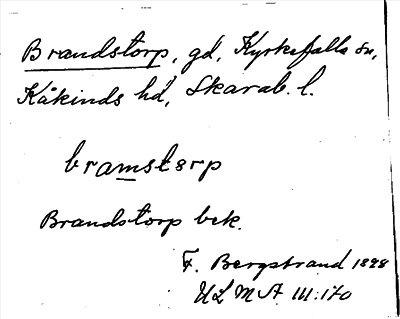 Brandstorp, gd, Kyrkefalla sn,
Kåkinds hd, Skarab. l.
bramstɛrp
Brandstorp bek.
F. Bergstrand 1898
ULMA 111:170